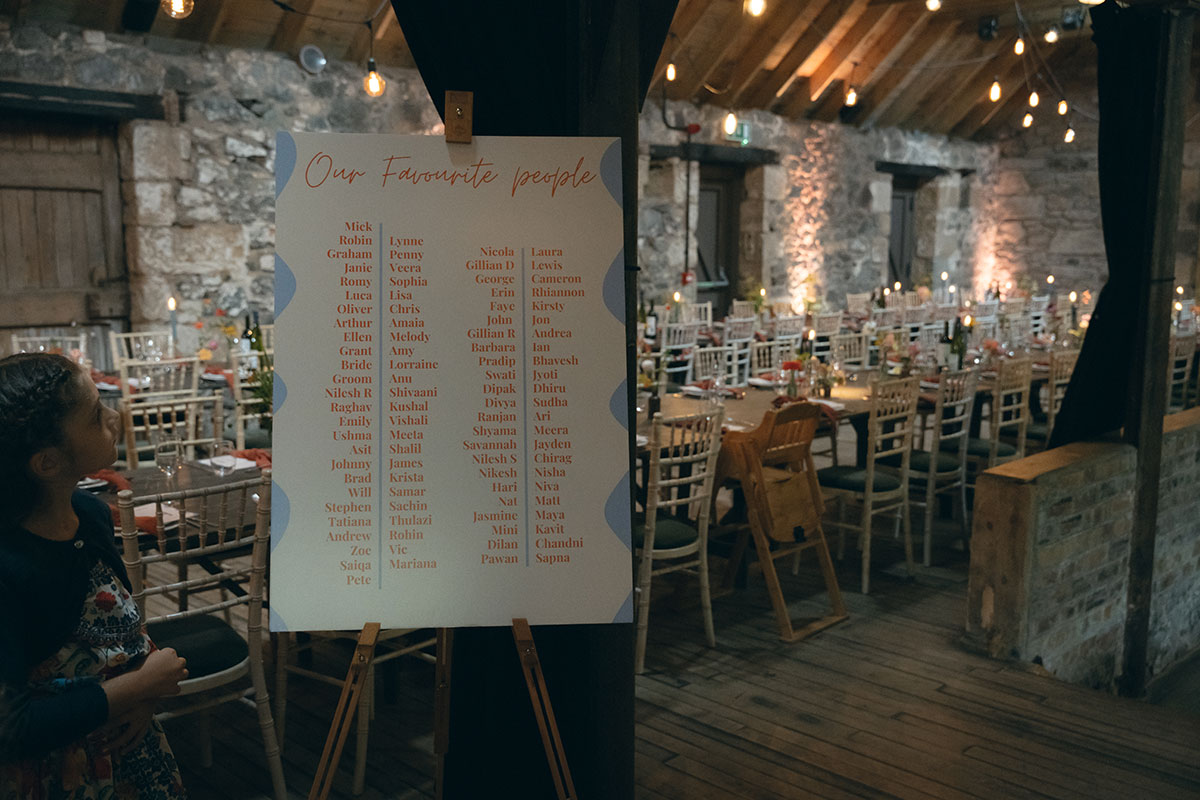 Our Favourite people
Mick
Robin
Graham
Janie
Romy
Luca
Oliver
Arthur
Ellen
Grant
Bride
Groom
Nilesh R
Raghav
Emily
Ushma
Asit
Johnny
Brad
Will
Stephen
Tatiana
Andrew
Zoe
Saiqa
Pete
Lynne
Penny
Veera
Sophia
Lisa
Chris
Amaia
Melody
Amy
Lorraine
Anu
Shivaani
Kushal
Vishali
Meeta
Shalil
James
Krista
Samar
Sachin
Thulazi
Rohin
Vic
Mariana
Nicola
Gillian D
George
Erin
Faye
John
Gillian R
Barbara
Pradip
Swati
Dipak
Divya
Ranjan
Shyama
Savannah
Nilesh S
Nikesh
Hari
Nat
Jasmine
Mini
Dilan
Pawan
Laura
Lewis
Cameron
Rhiannon
Kirsty
Jon
Andrea
Ian
Bhavesh
Jyoti
Dhiru
Sudha
Ari
Meera
Jayden
Chirag
Nisha
Niva
Matt
Maya
Kavit
Chandni
Sapna